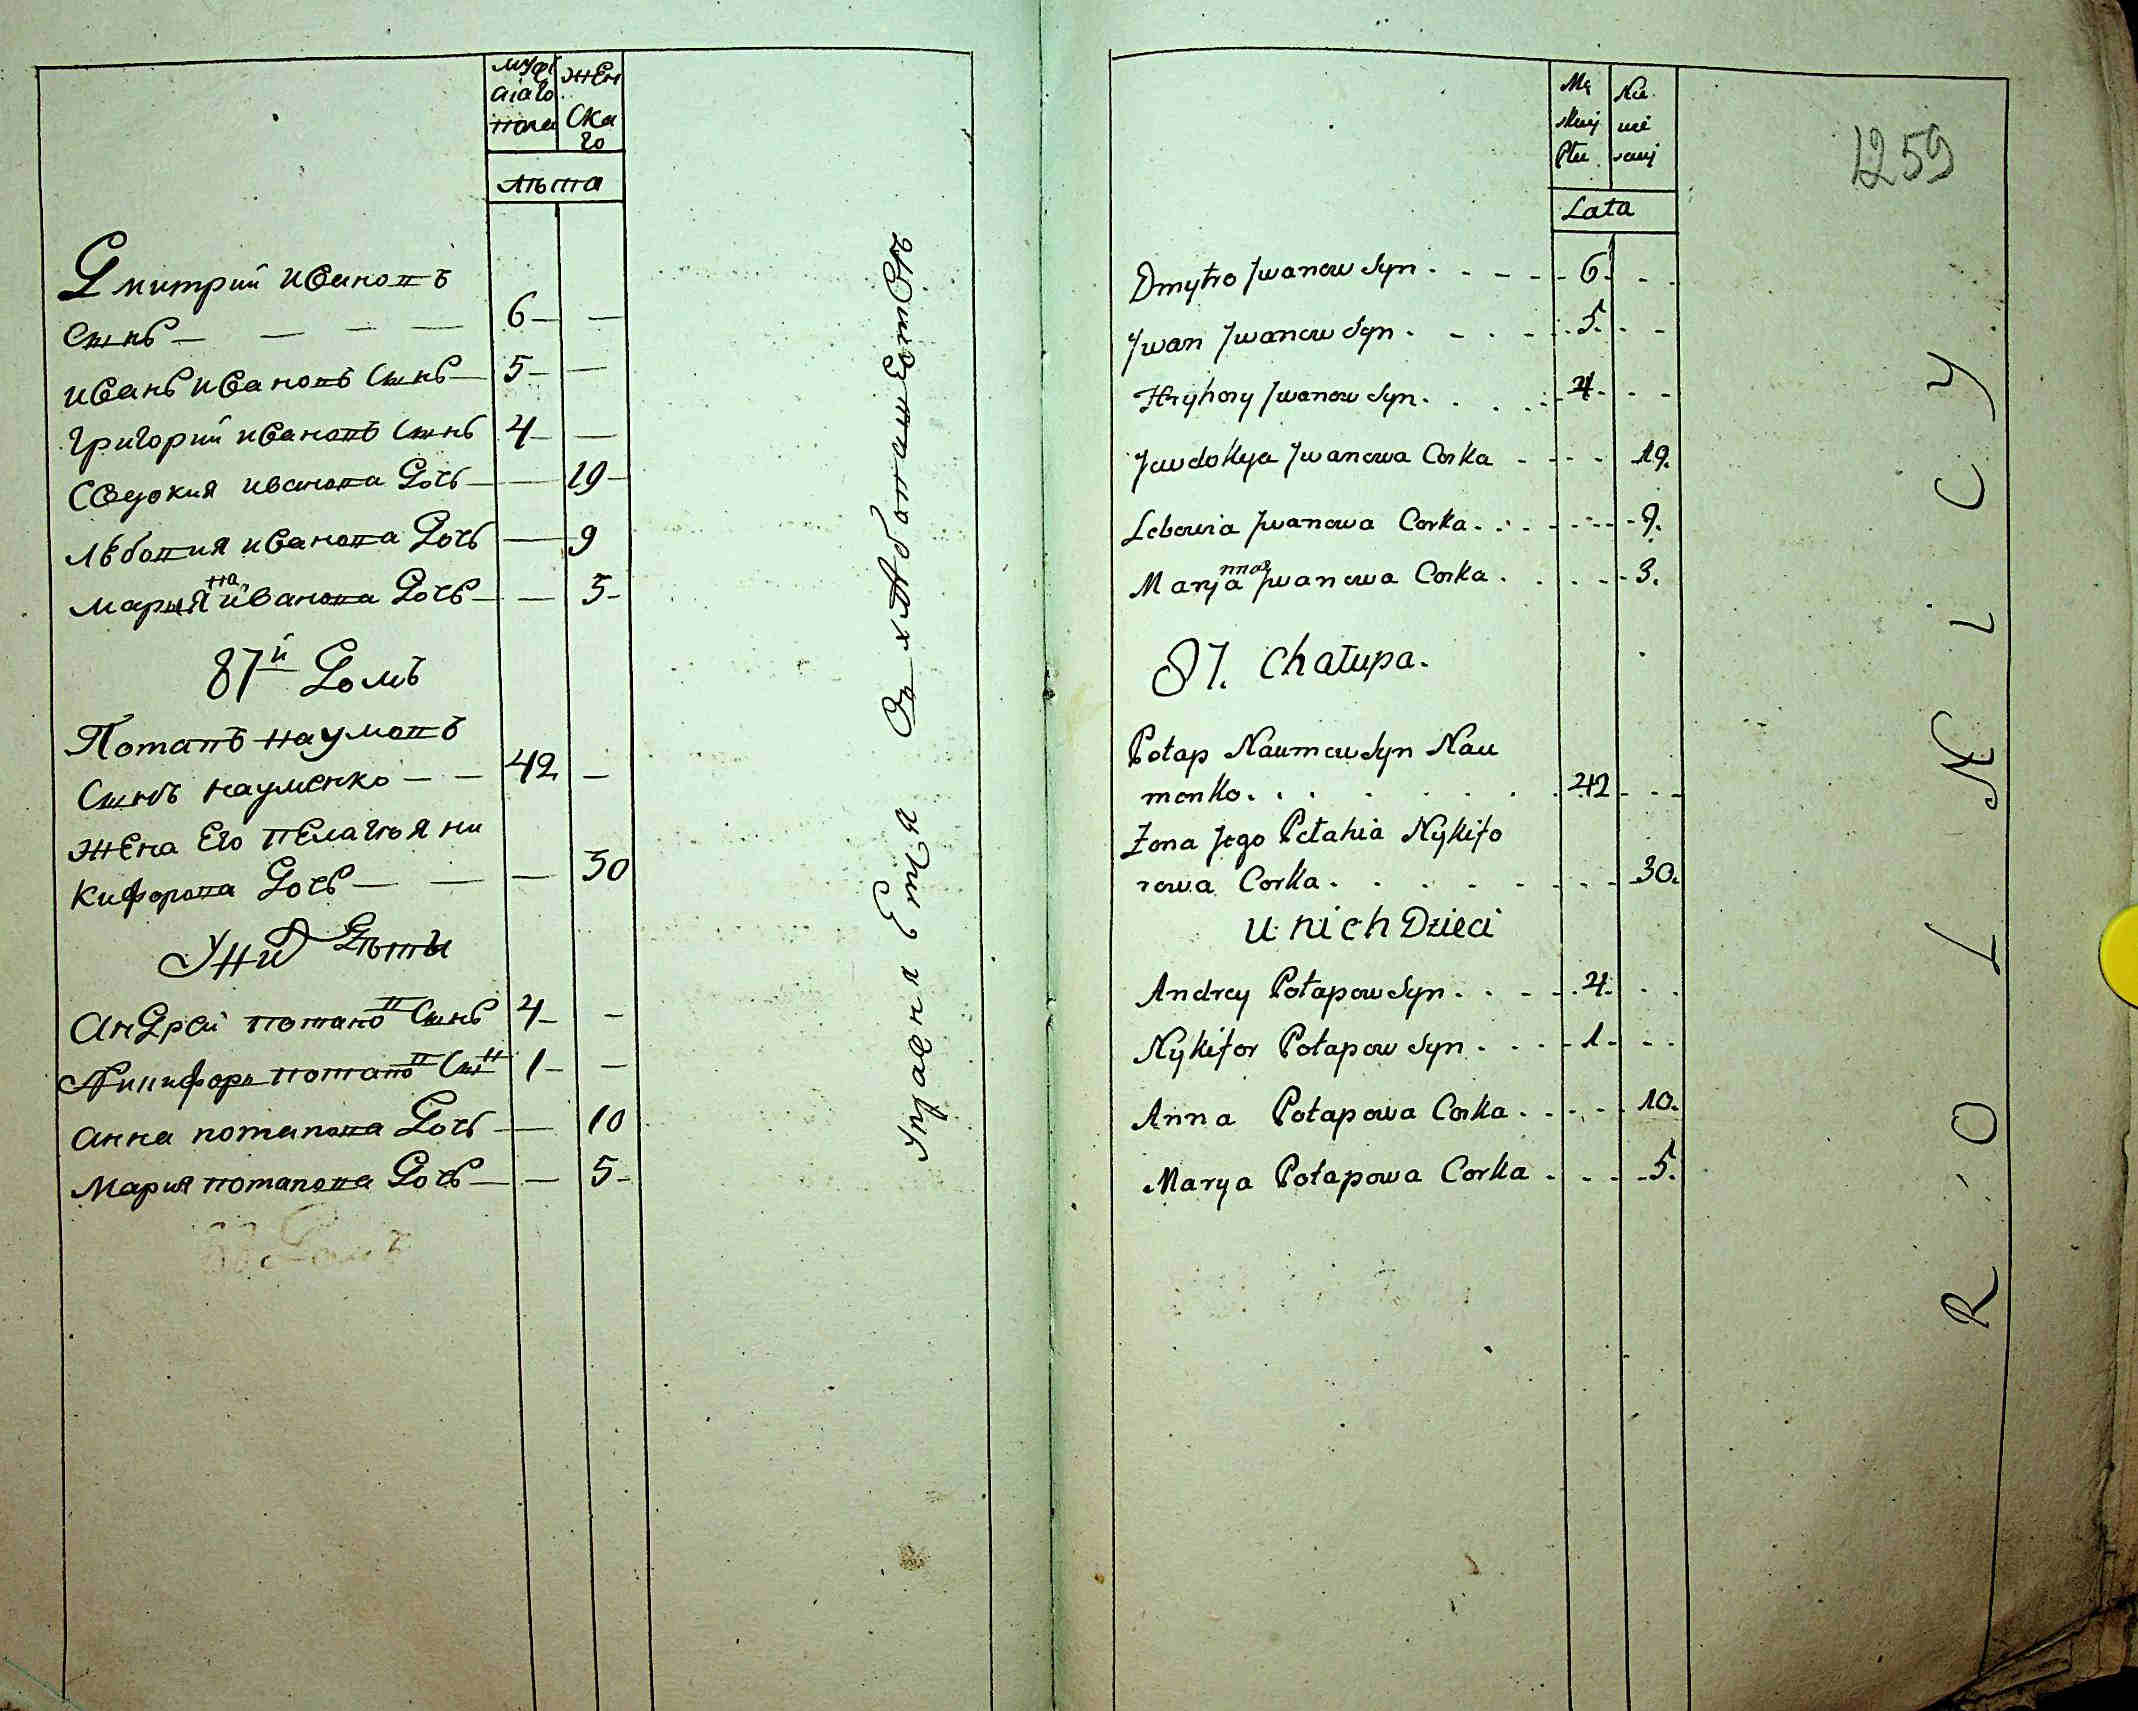 мужескаго пола
женскаго
лѣта
Дмитрий Ивановъ
Сынъ — — — — 6 — —
Иванъ Ивановъ Сынъ — 5 — —
Григорий Ивановъ Сынъ 4 — —
Евдокия Иванова Дочь — — 19 —
Лѣбовия Иванова Дочь — 9
на
Мария Иванова Дочь — — 3 —
87й Домъ
Потапъ Наумовъ
Сынъ Науменко — — 42 —
Жена Его Пелагея Ни
кифорова Дочь — — — 30
У них Дѣти
Андрей Потаповъ Сынъ 4 — —
Никифоръ Потаповъ Сынъ 1 — —
Анна Потапова Дочь — — 10
Мария Потапова Дочь — — 5 —
88 Домъ
Mę skiej Płci
Lata
1259
Dmytro Jwanow Syn . - - - 6. - -
Jwan Jwanow Syn . - . - 5. . -
Hryhory Jwanow Syn . . . . 4. . -
Jewdokya Jwanowa Corka - - - . 19.
Lebowia Jwanowa Corka . . . - - - 9.
Marya Jwanowa Corka . . . - - 3.
87. Chałupa.
Potap Naumow Syn Nau
menko . . . . . . . 42 . . -
Żona Jego Pełahia Nykifo
rowa Corka . . . . . . - - 30.
u nich Dzieci
Andrey Potapow Syn . . . - . 4. . .
Nykifor Potapow Syn . . . - 1. - -
Anna Potapowa Corka . . . - . 10.
Marya Potapowa Corka . . . - 5.
R O L N I C Y